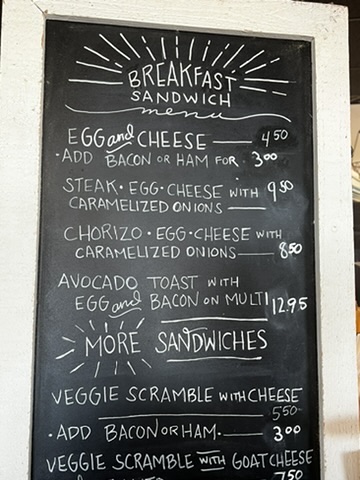 BREAKFAST
SANDWICH
menu
EGG and CHEESE — 4 50
• ADD BACON OR HAM FOR • 3 00
STEAK • EGG • CHEESE WITH 9 50
CARAMELIZED ONIONS —
CHORIZO • EGG • CHEESE WITH
CARAMELIZED ONIONS — 8 50
AVOCADO TOAST WITH
EGG and BACON ON MULTI 12.95
MORE SANDWICHES
VEGGIE SCRAMBLE WITH CHEESE
5 50
• ADD BACON OR HAM — 3 00
VEGGIE SCRAMBLE WITH GOAT CHEESE
7 50